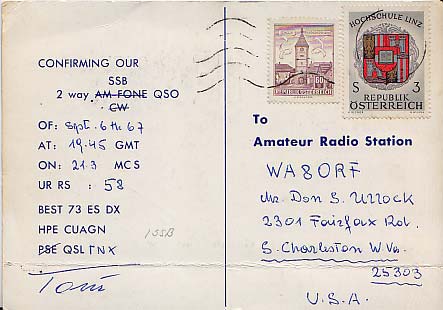 CONFIRMING OUR
SSB
2 way AM-FONE QSO
CW
OF: Sept. 6th 67
AT: 19.45 GMT
ON: 21.3 MCS
UR RS : 58
BEST 73 ES DX
HPE CUAGN
PSE QSL TNX
1 SSB
HOCHSCHULE LINZ
S 3
REPUBLIK
ÖSTERREICH
60
To
Amateur Radio Station
WA8ORF
Mr. Don S.
2301 Fairfax Rd.
S. Charleston W Va.
25303
U.S.A.